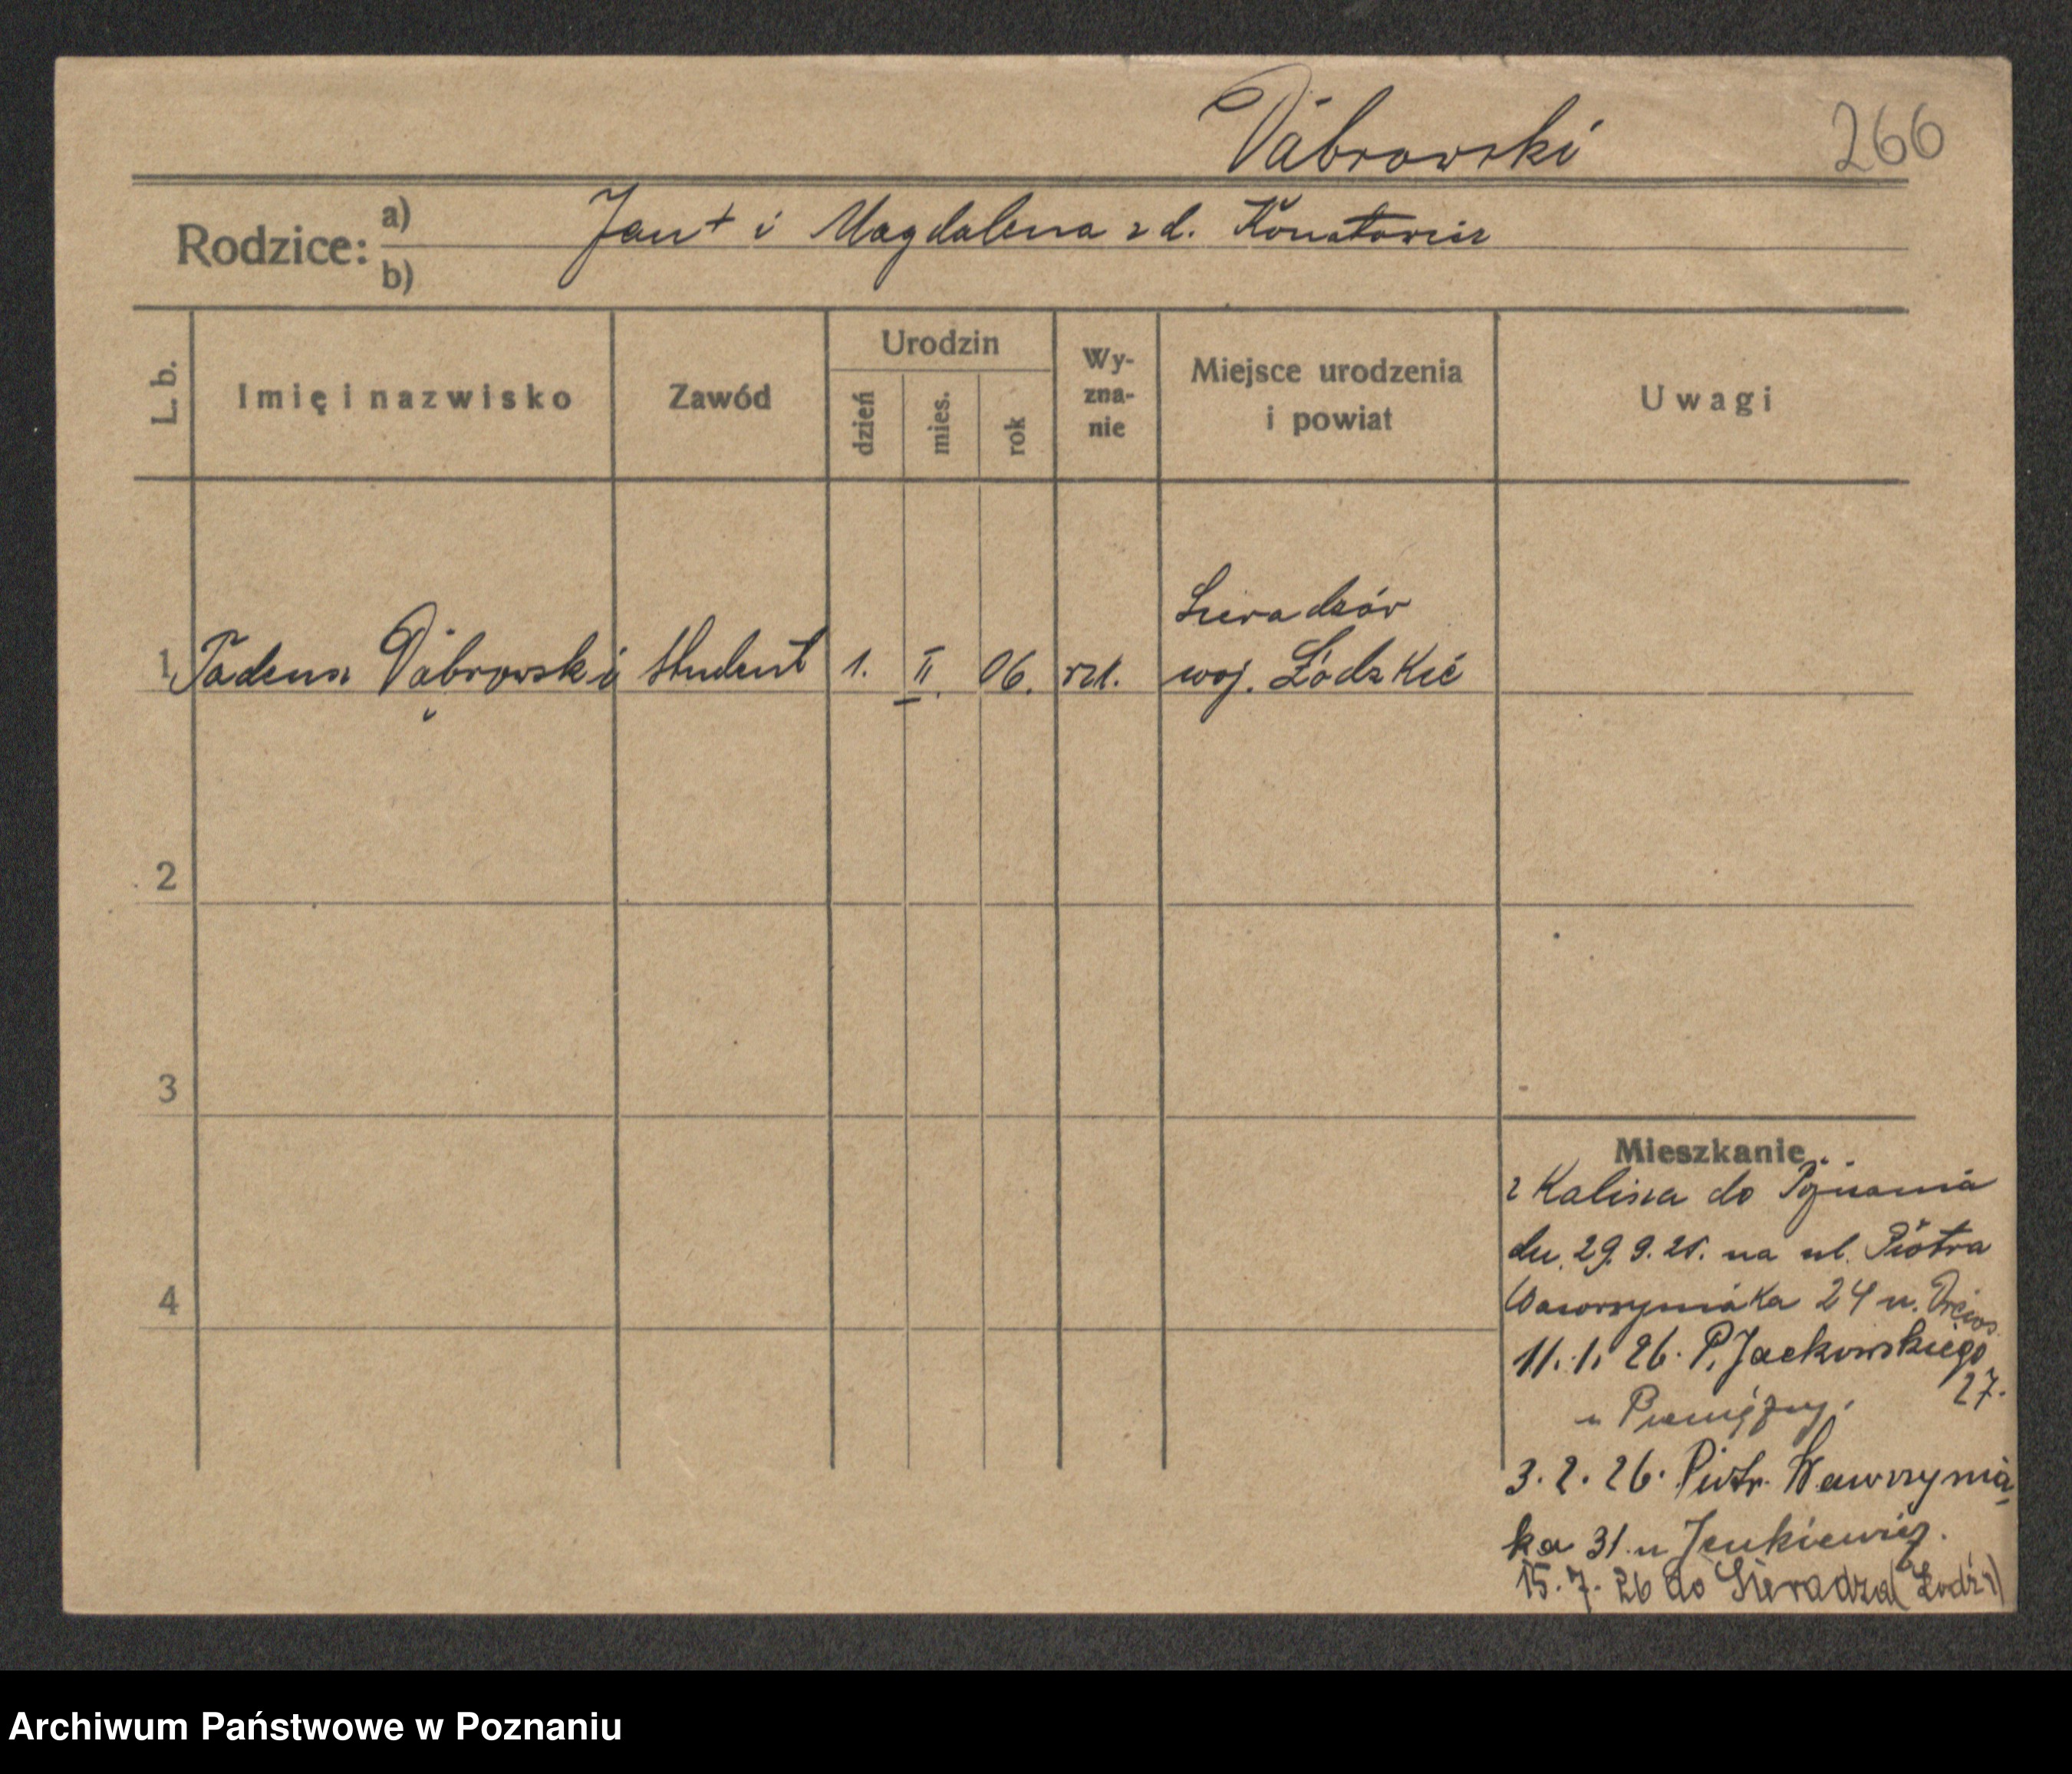 Dąbrowski
266
Rodzice:
a)
b)
Jan + i Magdalena z d.
L. b.
Imię i nazwisko
Zawód
Urodzin
dzień
mies.
rok
Wy-
zna-
nie
Miejsce urodzenia
i powiat
Uwagi
1 Tadeusz Dąbrowski student 1. II. 06. rzk.
woj. Łódzkie
2
3
4
Mieszkanie
z Kalisza do Poznania
dn. 29.9.25. na ul. Piotra
Wawrzyniaka 24 u.
11.1.26. P. Jackowskiego
27.
u
3.2.26. Piotr. Wawrzynia-
ka 31 u
15.7.26 do Sieradza (Łódź)
Archiwum Państwowe w Poznaniu